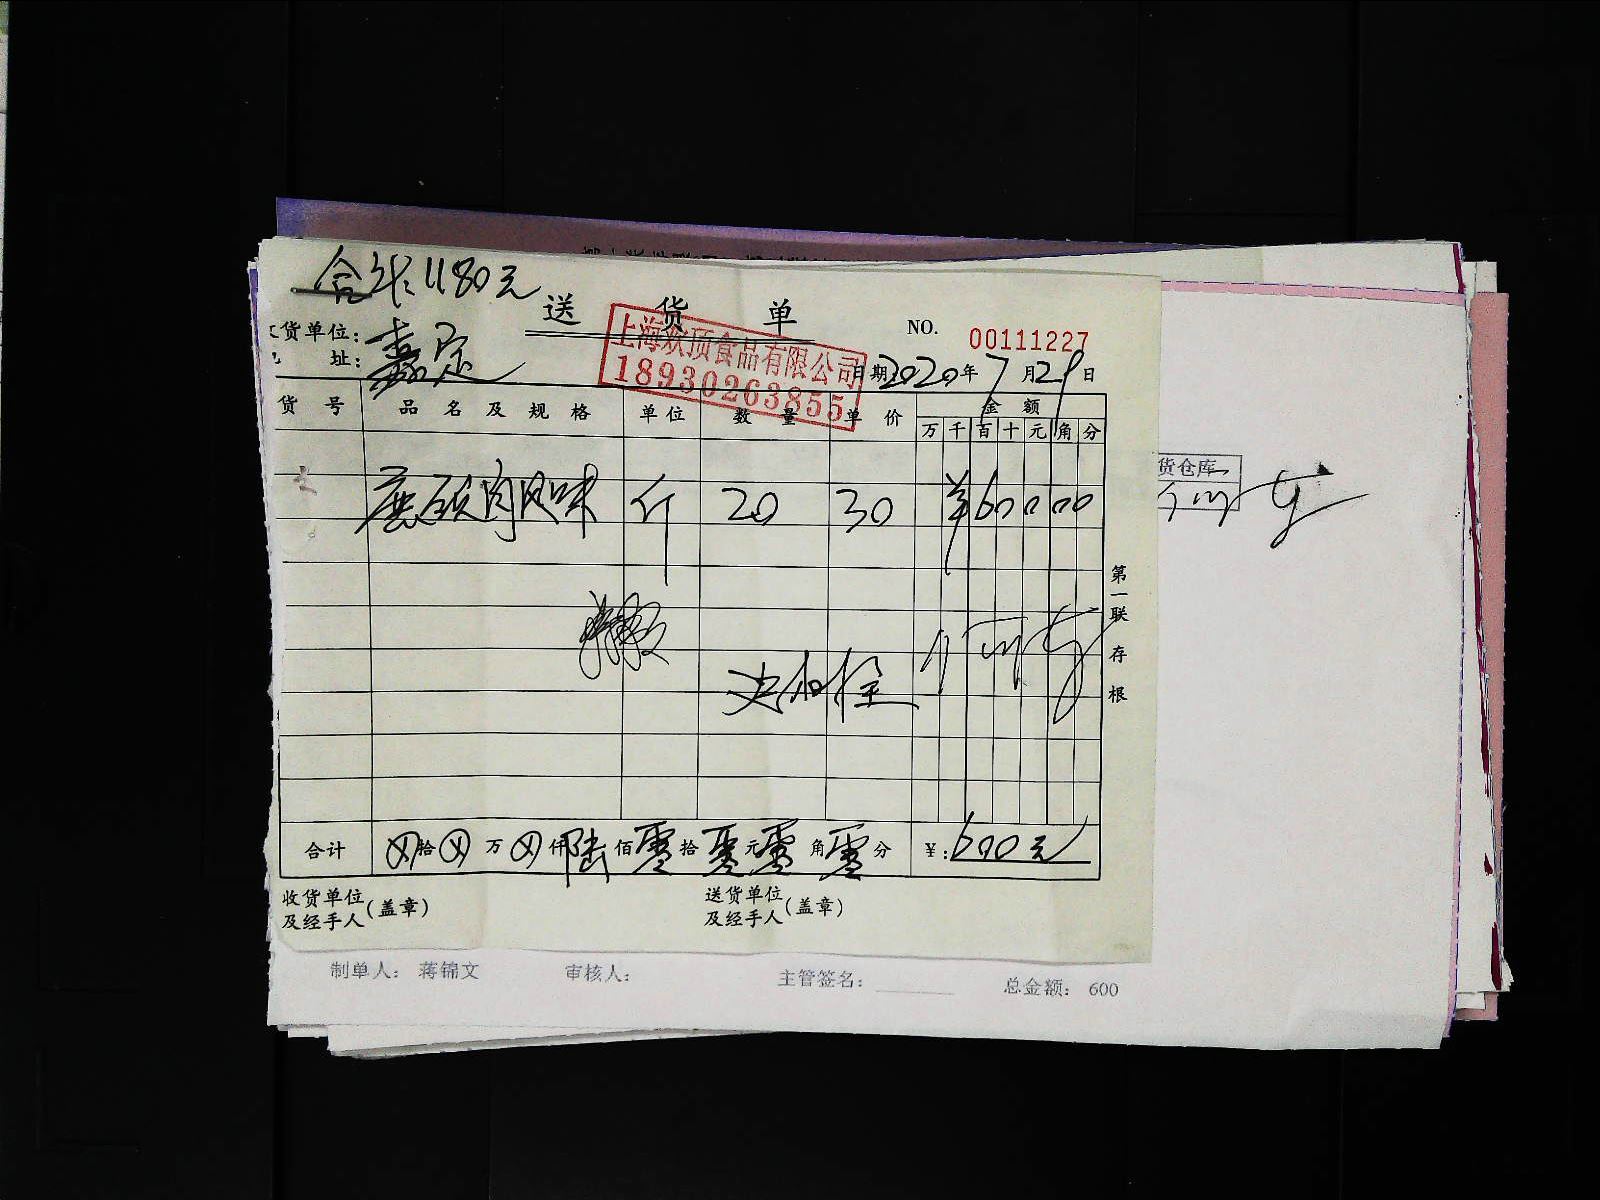 合计:1180元
送货单
上海欢顶食品有限公司
18930263855
NO. 00111227
货单位:
址: 嘉定
日期 2020年7月29日
货号 品名及规格 单位 数量 单价 金额
万 千 百 十 元 角 分
风味 斤 20 30 ¥60000
货仓库
第一联存根
合计 ⊗拾⊗万⊗仟陆佰零拾零元零角零分 ¥:600元
收货单位及经手人(盖章) 送货单位及经手人(盖章)
制单人: 蒋锦文 审核人: 主管签名: 总金额: 600